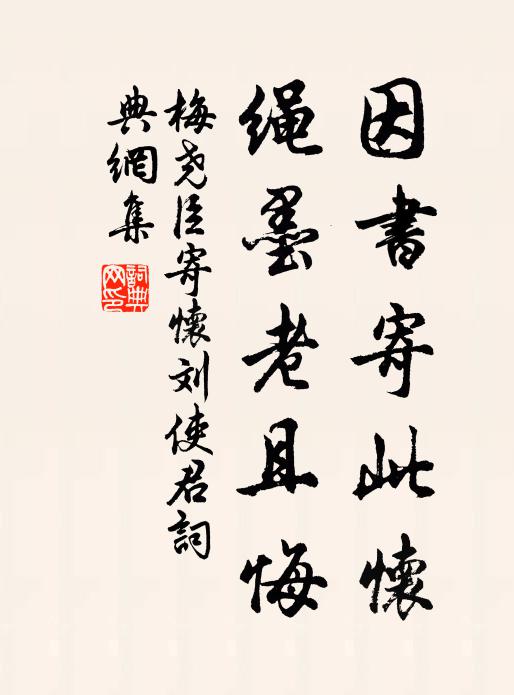 因書寄此懷
繩墨老且悔
梅尧臣寄懷刘使君詞
典網集
詞典
网印